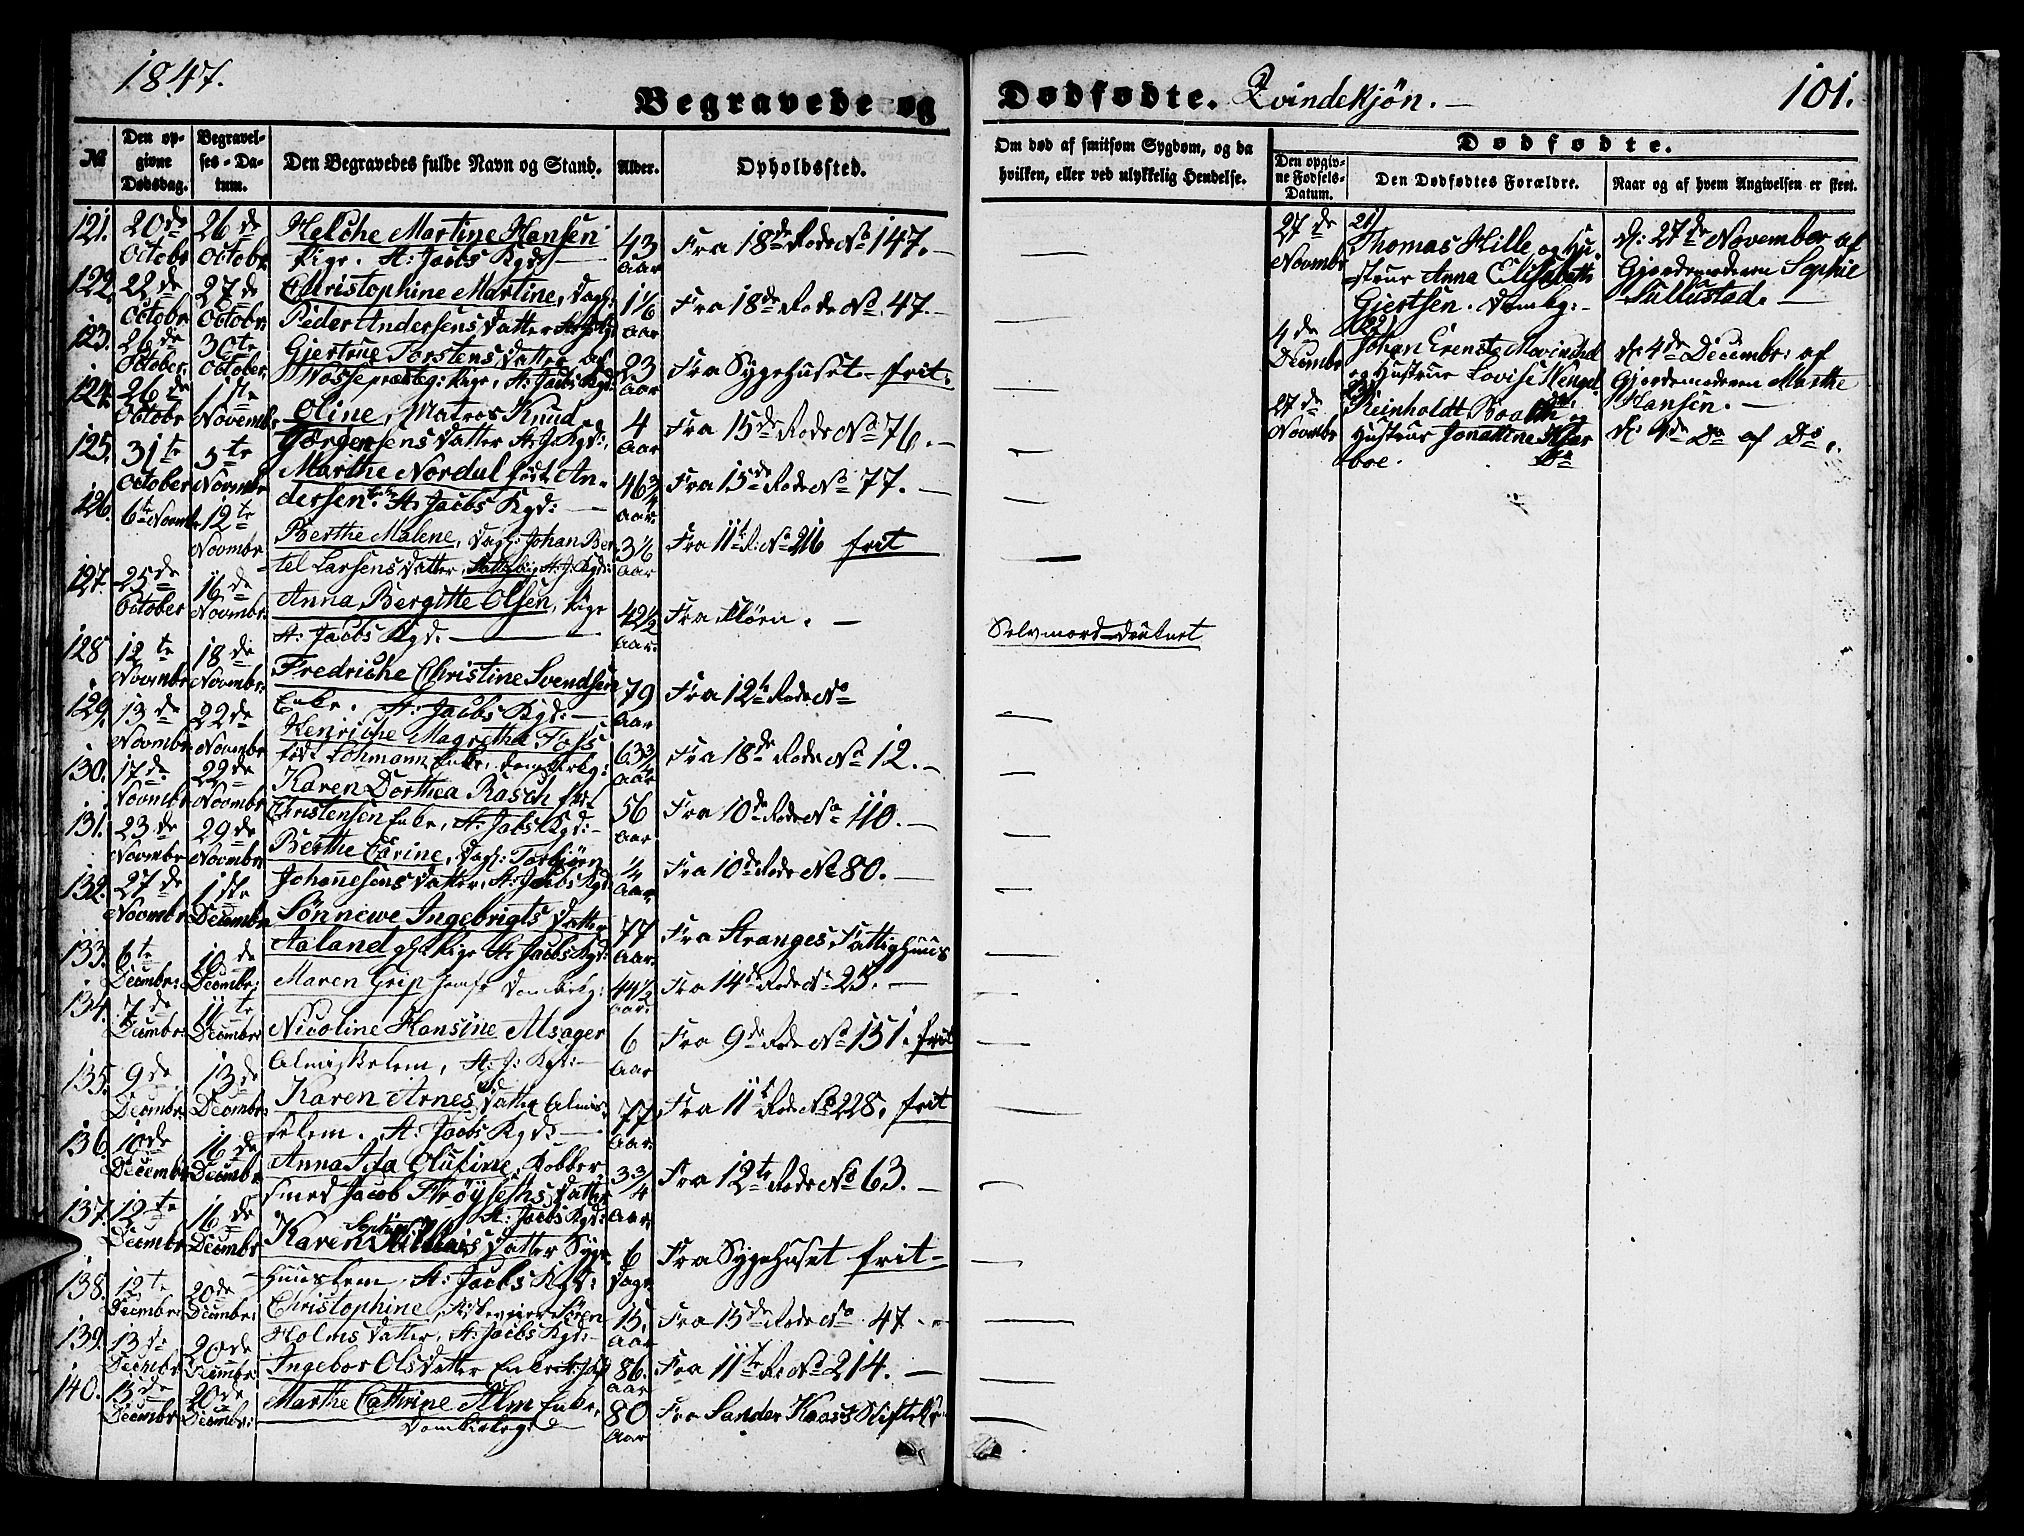 1847.
Begravede og
Dødfødte. Qvindekjøn. —
101.
№
Den opgivne Dødsdag.
Begravelses-Datum.
Den Begravedes fulde Navn og Stand.
Alder.
Opholdssted.
Om død af smitsom Sygdom, og da hvilken, eller ved ulykkelig Hendelse.
Dødfødte.
Den opgivne Fødsels-Datum.
Den Dødfødtes Forældre.
Naar og af hvem Angivelsen er skeet.
121. 20de October 26de October Helche Martine Hansen 43 Aar Fra 18de Rode No 147. —
Pige. St: Jacobs Kgd: —
122. 22de October 27de October Christophine Martine, Dagl: 1 1/6 Aar Fra 18de Rode No 47. —
Peder Andersens Datter
123. 26de October 30te October Gjertrue Torstens Datter af 23 Aar Fra Sygehuset - frit.
Vossepræsteg: Pige, St: Jacobs Kgd:
124. 26de October 1ste Novembr Oline, Matros Knud 4 Aar Fra 15de Rode No 76. —
Jørgensens Datter St: J: Kgd:
125. 31te October 5te Novembr Marthe Nordal født An- 46 3/4 Aar Fra 15de Rode No 77. —
dersen St: Jacobs Kgd: —
126. 6te Novembr 12te Novembr Berthe Malene, Dagl: Johan Ber- 3 1/6 Aar Fra 11te R: No 216 frit
tel Larsens Datter, St: J: Kgd:
127. 25de October 16de Novembr: Anna Bergitte Olsen, Pige 42 1/2 Aar. Fra Møen. — Selvmord druknet
St: Jacobs Kgd: —
128 12te Novembr 18de Novembr: Fredriche Christine Svendsen 79 Aar Fra 12te Rode No
Enke. St: Jacobs Kgd: —
129. 13de Novembr 22de Novembr Henriche Magrethe Foss 63 3/4 Aar Fra 18de Rode No 12. —
født Lohmann Enke, Domkirkeg:
130. 17de Novembr 22de Novembr Karen Dorthea Rasch født 56 Aar Fra 10de Rode No 110. —
Christensen Enke, St: Jabs Kgd: —
131. 23de Novembr 29de Novembr Berthe Carine, Dagl: Torbjørn 1/4 Aar Fra 10de Rode No 80. —
Johannesens Datter, St: Jacobs Kgd:
132. 27de Novembr 1ste Decembr Sønnewe Ingebrigts Datter 77 Aar. Fra Stranges Fattighuus
Aaland Pige St: Jacobs Kgd:
133. 6te Decembr: 10de Decembr: Maren Grip Jomfr Domkirkg: 44 1/2 Aar. Fra 14de Rode No 25. —
134. 7de Decembr: 11te Decembr: Nicoline Hansine Alsager 6 Aar Fra 9de Rode No 151. frit
Almisselem, St: J: Kgd: —
135. 9de Decembr: 13de Decembr: Karen Arnes Datter Almis- 77 Aar. Fra 11te Rode No 228. frit
selem. St: Jacobs Kgd: —
136. 10de Decembr 16de Decembr Anna Ida Olufine, Kobber- 3 3/4 Aar. Fra 12te Rode No 63. —
smed Jacob Frøyseths Datter
St: Jacobs Kgd:
137. 12te Decembr 16de Decembr Karen Nilsens Datter Syge- 6 Dage Fra Sygehuset frit —
huuslem. St: Jacobs Kgd:
138. 12te Decembr: 20de Decembr: Christophine, Søren 15 Aar Fra 15de Rode No 47 —
Holms Datter, St: Jacobs Kgd: —
139. 13de Decembr 20de Decembr: Ingebor Ols Datter Enke St: Jac 86. Aar Fra 11te R: No 214. —
140. 15de Decembr 20de Decembr: Marthe Cathrine Alm Enke, 80 Aar Fra Sander Kaas's Stiftelse
Domkirkeg:
27de Novembr 21) Thomas Hille og Hu- d: 27de November af
strue Anna Elisabeth Gjordemoderen Sophie
Gjertsen. Domkg: — Sullestad. —
4de Decembr 22) Johan d: 4de Decembr: af
og Hustrue Lovise Wengel Gjordemoderen Marthe
27de Novembr Reinholdt og Hansen. —
Hustrue d: 4de Do af Do.
boe. Do